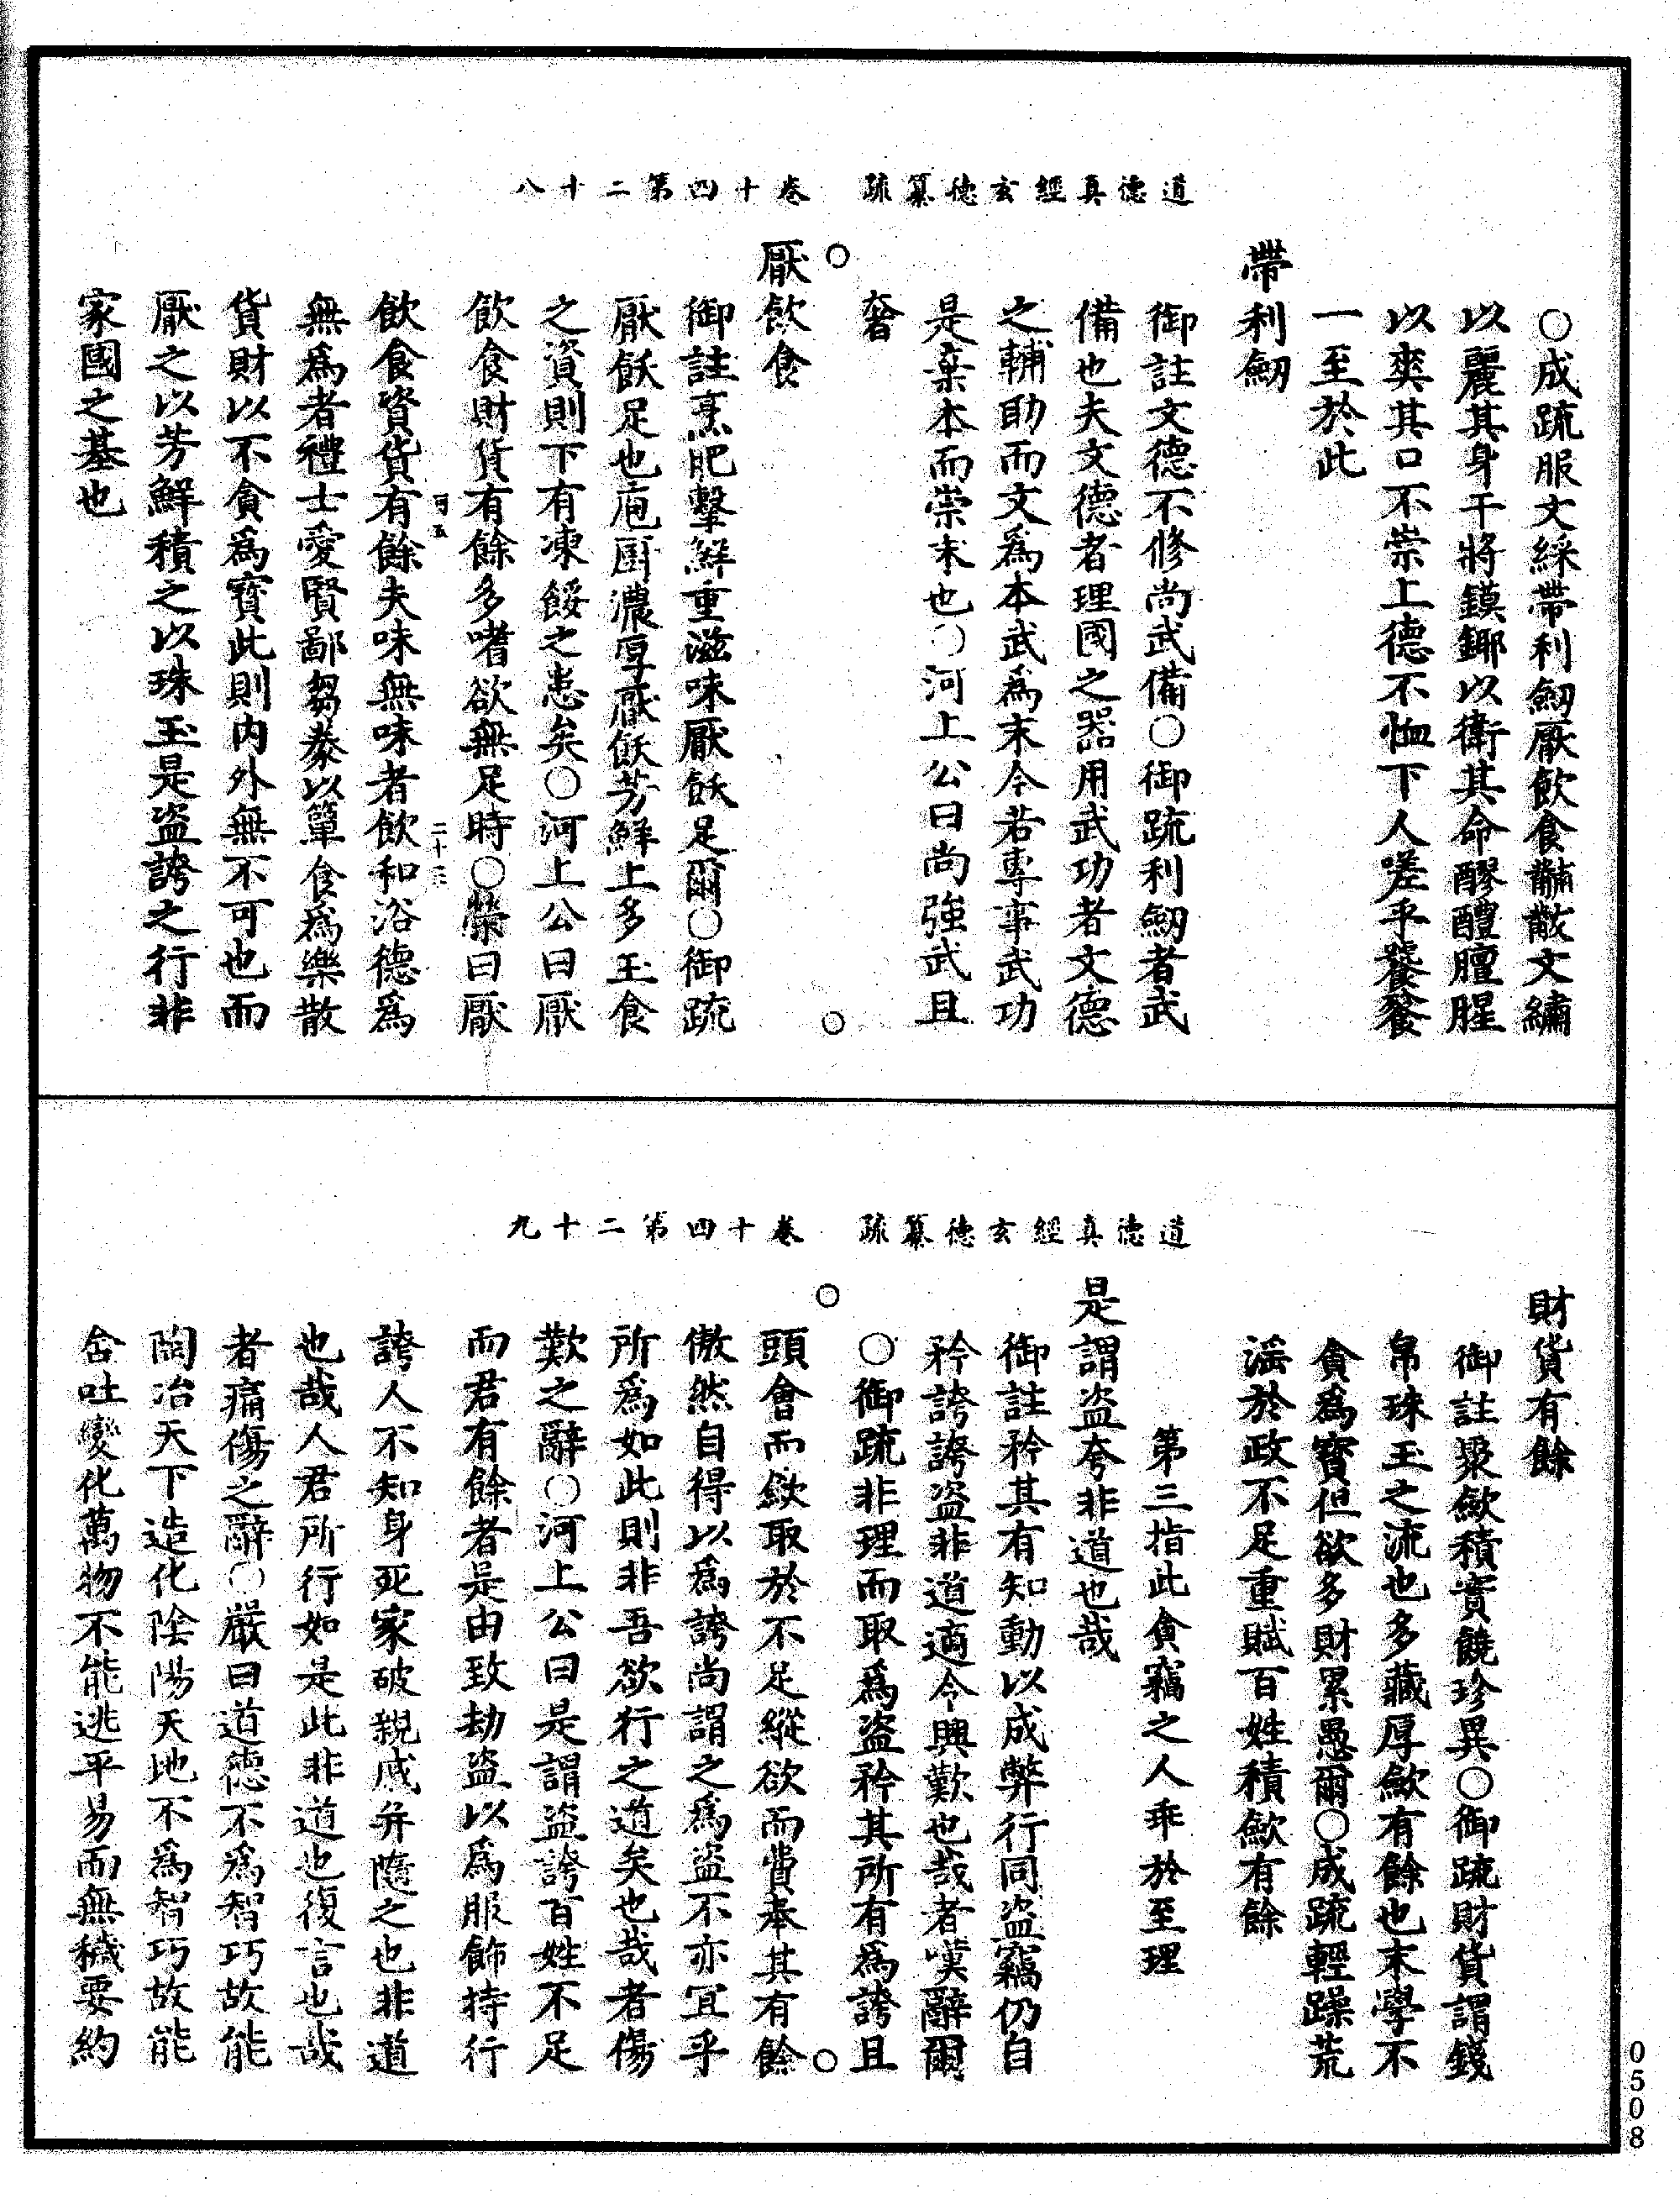 道德真經玄德纂疏　卷十四第二十八
○成疏服文綵帶利劒厭飲食黼黻文繡
以麗其身干將鏌鎁以衛其命醪醴膻腥
以爽其口不崇上德不恤下人嗟乎饕餮
一至於此
帶利劒
御註文德不修尚武備○御疏利劒者武
備也夫文德者理國之器用武功者文德
之輔助而文爲本武爲末今若專事武功
是棄本而崇末也○河上公曰尚強武且
奢
厭飲食
御註烹肥擊鮮重滋味厭飫足爾○御疏
厭飫足也庖厨濃厚厭飫芳鮮上多玉食
之資則下有凍餒之患矣○河上公曰厭
飲食財貨有餘多嗜欲無足時○榮曰厭
飲食資貨有餘夫味無味者飲和浴德爲
無爲者禮士愛賢鄙芻豢以簞食爲樂散
貨財以不貪爲寳此則内外無不可也而
厭之以芳鮮積之以珠玉是盜誇之行非
家國之基也
道德真經玄德纂疏　卷十四第二十九
財貨有餘
御註聚歛積實饒珍異○御疏財貨謂錢
帛珠玉之流也多藏厚歛有餘也末學不
貪爲寳但欲多財累愚爾○成疏輕躁荒
滛於政不足重賦百姓積歛有餘
第三指此貪竊之人乖於至理
是謂盜夸非道也哉
御註矜其有知動以成弊行同盜竊仍自
矜誇誇盜非道適令興歎也哉者嘆辭爾
○御疏非理而取爲盜矜其所有爲誇且
頭會而歛取於不足縱欲而費奉其有餘
傲然自得以爲誇尚謂之爲盜不亦宜乎
所爲如此則非吾欲行之道矣也哉者傷
歎之辭○河上公曰是謂盜誇百姓不足
而君有餘者是由致劫盜以爲服飾持行
誇人不知身死家破親戚并隨之也非道
也哉人君所行如是此非道也復言也哉
者痛傷之辭○嚴曰道德不爲智巧故能
陶冶天下造化陰陽天地不爲智巧故能
含吐變化萬物不能逃平易而無穢要約
0508